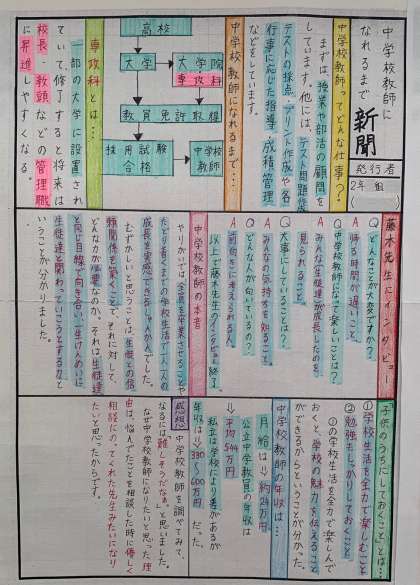 中学校教師に
なれるまで 新聞
発行者
2年 組
中学校教師ってどんな仕事?
まずは、授業や部活の顧問を
しています。他には、テスト問題作成、
テストの採点、プリント作成や各
行事に応じた指導、成績管理
などをしています。
中学校教師になれるまで…
高校
大学
大学院
専攻科
教員免許取得
採用試験
合格
中学校
教師
専攻科とは…
一部の大学に設置され
ていて、修了すると将来は
校長・教頭などの管理職
に昇進しやすくなる。
藤木先生にインタビュー
Q どんなことが大変ですか?
A 帰る時間が遅いこと。
Q 中学校教師になって楽しいことは?
A みんな生徒達が成長したのを、
見られること。
Q 大事にしていることは?
A みんなの気持ちを知ること。
Q どんな人が向いているの?
A 面白くに考えられる人。
以上で藤木先生のインタビュー終了。
中学校教師の本音
やりがいでは、全員を卒業させることや
たどり着くまでの学校生活で一人一人の
成長を実感できる。という人がいました。
むずかしいと思うことは、生徒との信
頼関係を築くことで、それに対して、
どんな力が必要なのか、それは、生徒達
と同じ目線で向き合い、一生けんめいに
生徒達と関わっていこうとする力だと
いうことが分かりました。
「子供のうちにしておくこと」とは
①学校生活を全力で楽しむこと
②勉強もしっかりしておくこと
①の学校生活を全力で楽しんで
おくと、学校の魅力を伝えること
ができるからということが分かった。
中学校教師の年収は…
月給は→約24万円
公立中学教員の年収は
→平均544万円
私立は学校により差があるが
年収は→330〜600万円だった。
感想
中学校教師を調べてみて、
なるには難しそうだなぁ。と思いました。
なぜ中学校教師になりたいと思った理
由は、悩んでたことを相談した時に優しく
相談にのってくれた先生みたいになり
たいと思ったからです。